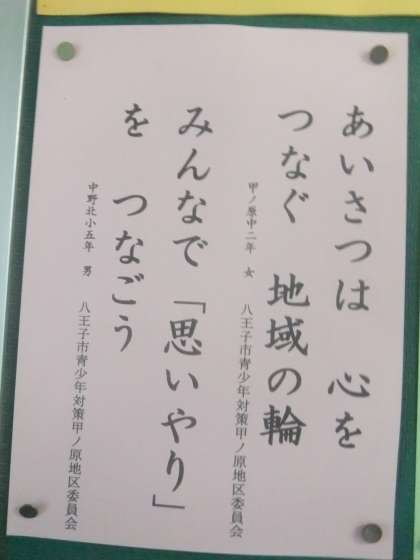 あいさつは 心を
つなぐ 地域の輪
甲ノ原中二年 女 八王子市青少年対策甲ノ原地区委員会
みんなで「思いやり」
を つなごう
中野北小五年 男 八王子市青少年対策甲ノ原地区委員会